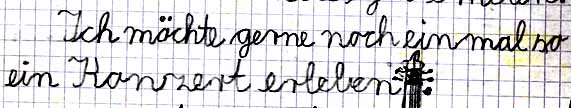 Ich möchte gerne noch einmal so
ein Konzert erleben